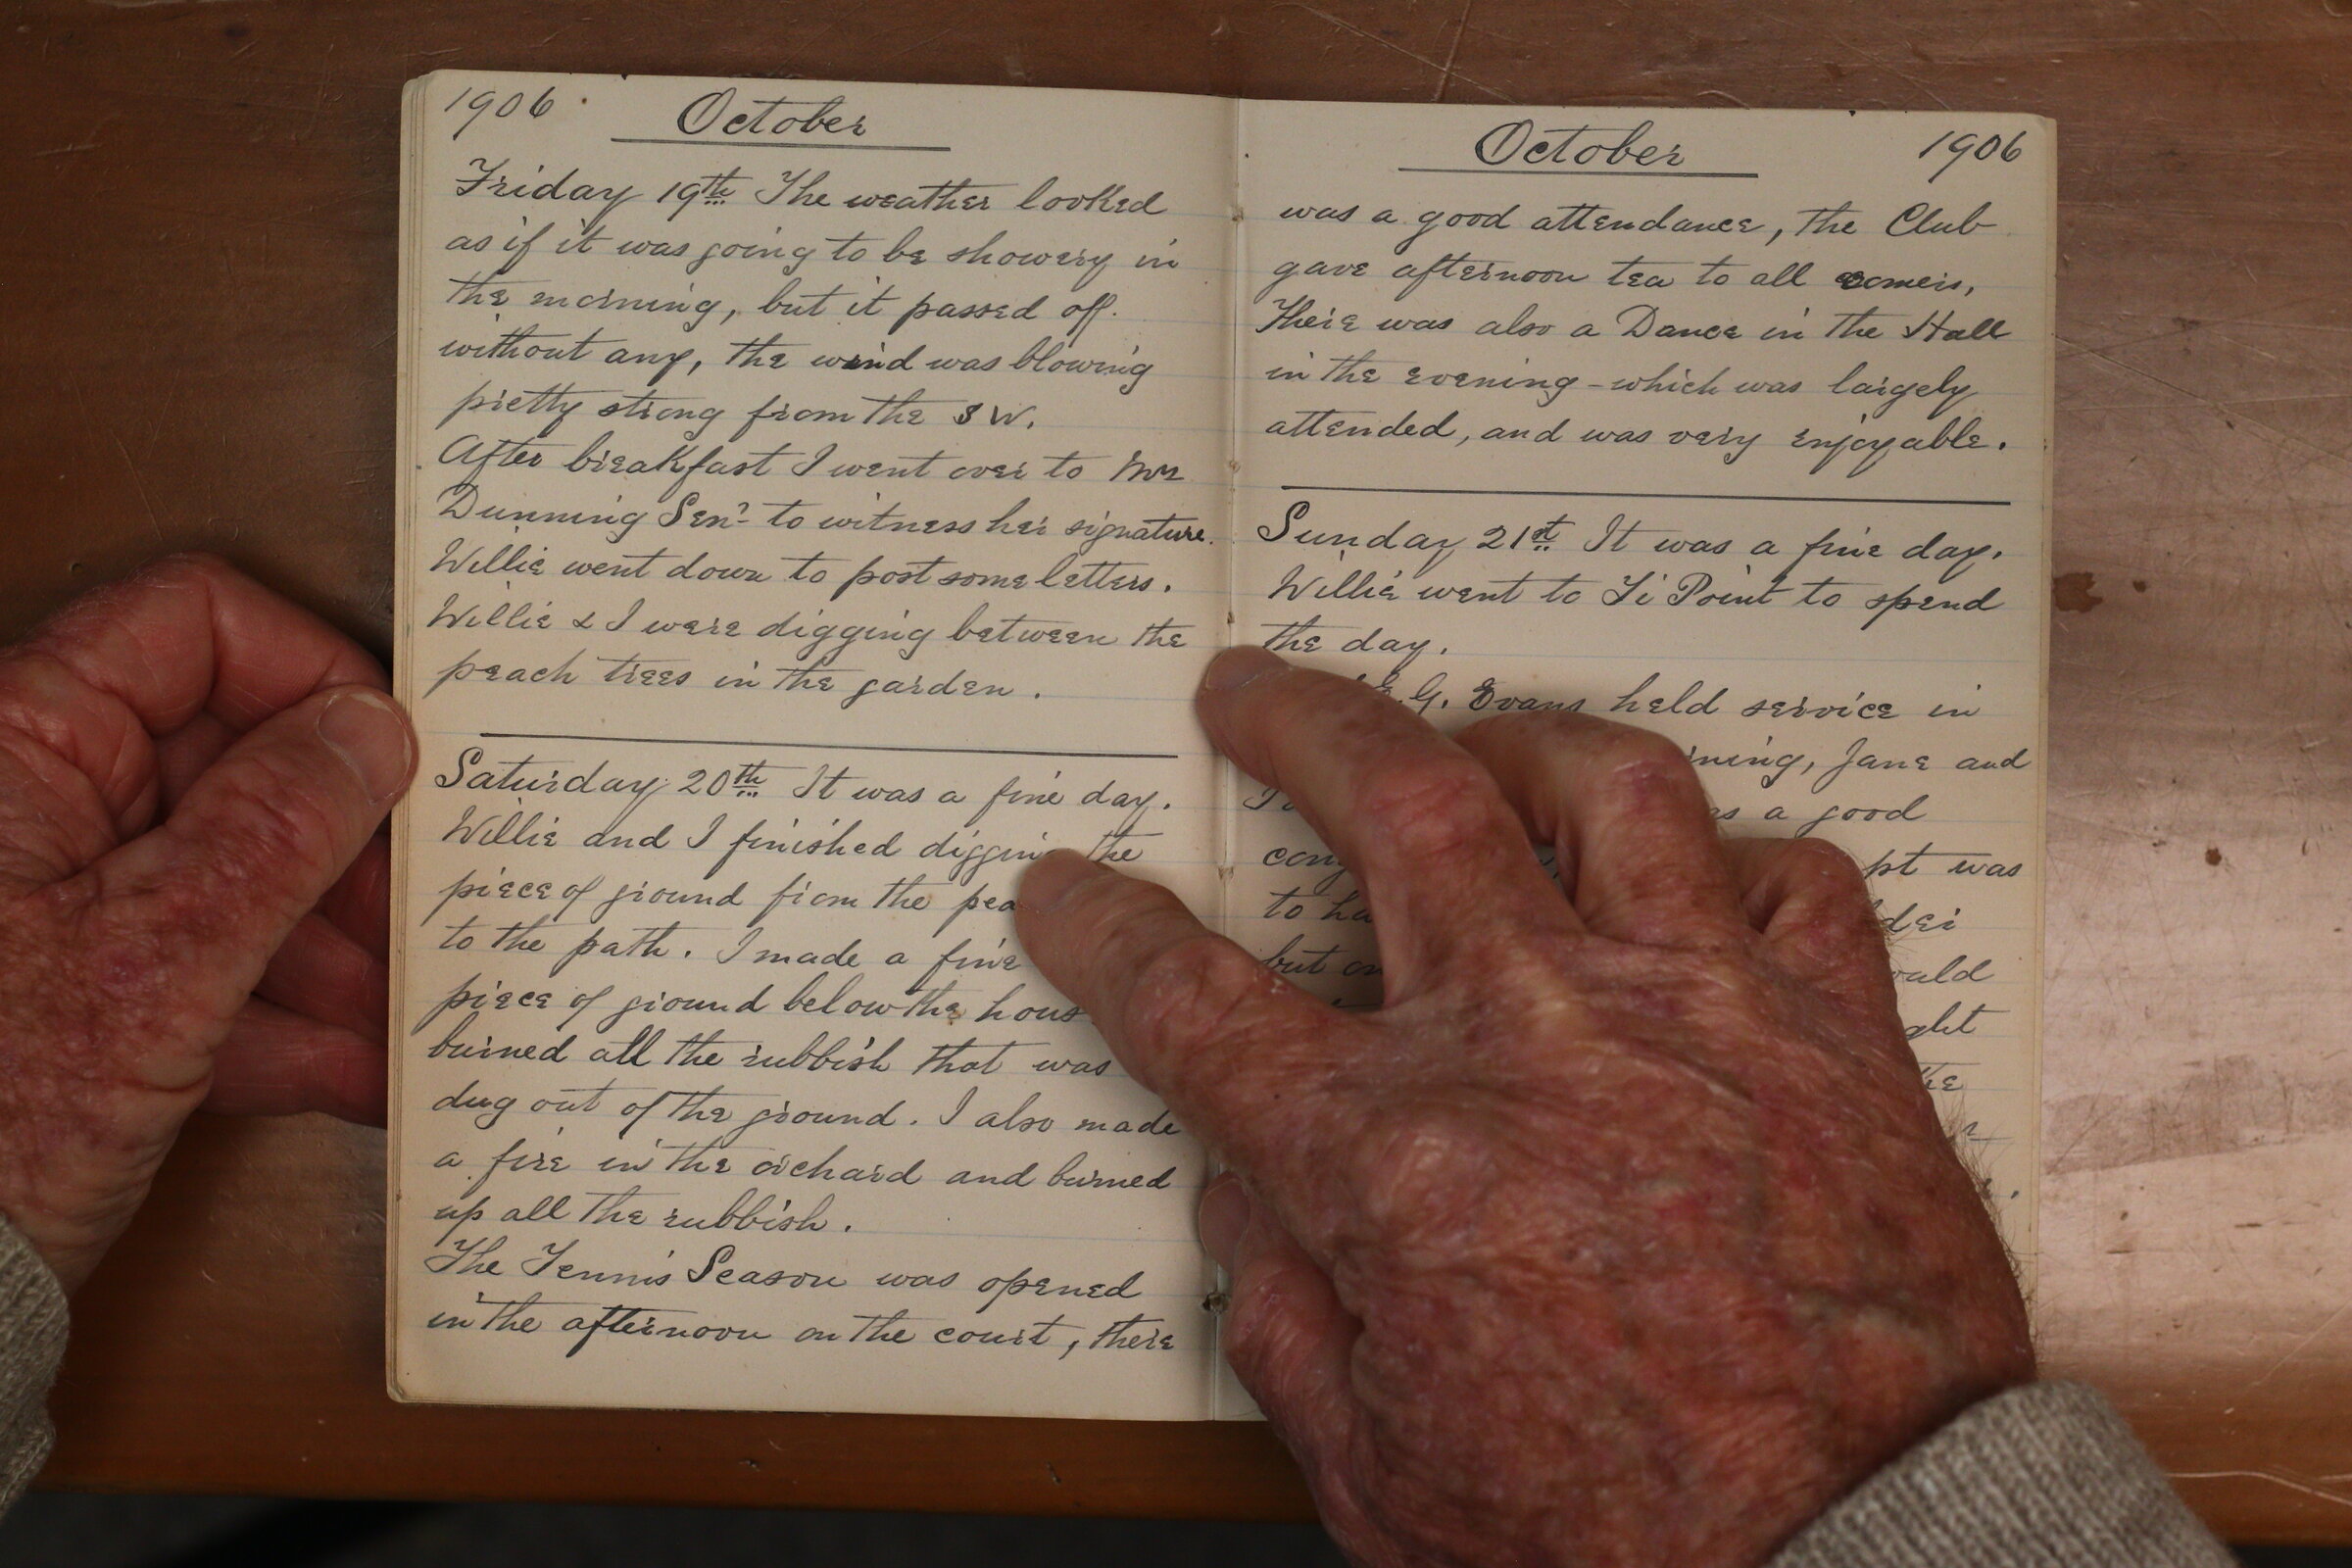 1906 October
Friday 19th The weather looked
as if it was going to be showery in
the morning, but it passed off.
without any, the wind was blowing
pretty strong from the SW.
After breakfast I went over to Mrs
Dunning Senr to witness her signature.
Willie went down to post some letters.
Willie & I were digging between the
peach trees in the garden.
Saturday 20th It was a fine day.
Willie and I finished digging the
piece of ground from the
to the path. I made a fire
piece of ground below the
burned all the rubbish that was
dug out of the ground. I also made
a fire in the orchard and burned
up all the rubbish.
The Tennis Season was opened
in the afternoon on the court, there
October 1906
was a good attendance, the Club
gave afternoon tea to all comers,
There was also a Dance in the Hall
in the evening - which was largely
attended, and was very enjoyable.
Sunday 21st It was a fine day.
Willie went to Ti Point to spend
the day.
G. Evans held service in
Jane and
a good
was
to
but